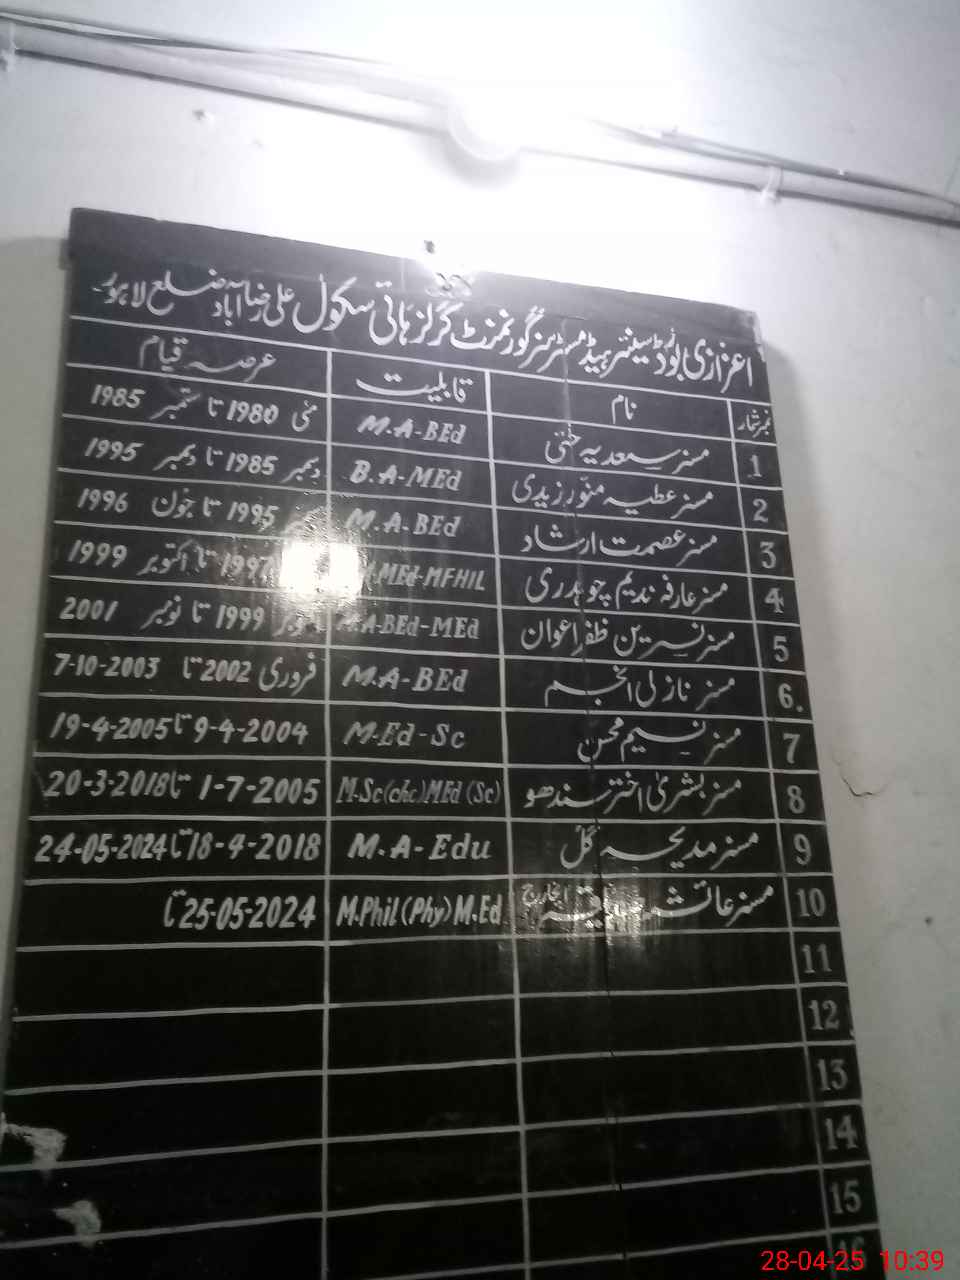 اعزازی بورڈ سینئر ہیڈ مسٹریسز گورنمنٹ گرلز ہائی سکول علی رضا آباد ضلع لاہور۔
نمبر شمار نام قابلیت عرصہ قیام
1 مسز سعدیہ M.A-BEd مئی 1980 تا ستمبر 1985
2 مسز عطیہ منور زیدی B.A-MEd دسمبر 1985 تا دسمبر 1995
3 مسز عصمت ارشاد M.A-BEd 1995 تا جون 1996
4 مسز عارفہ ندیم چوہدری MEd-MFHIL 1997 تا اکتوبر 1999
5 مسز نسرین ظفر اعوان A-BEd-MEd 1999 تا نومبر 2001
6. مسز نازلی انجم M.A-BEd فروری 2002 تا 7-10-2003
7 مسز نسیم محسن M-Ed-Sc 9-4-2004 تا 19-4-2005
8 مسز بشریٰ اختر سندھو M.Sc(che)MEd(Sc) 1-7-2005 تا 20-3-2018
9 مسز مدیحہ گل M.A-Edu 18-4-2018 تا 24-05-2024
10 مسز عائشہ انچارج M.Phil(Phy)M.Ed 25-05-2024 تا
11
12
13
14
15
16
28-04-25 10:39